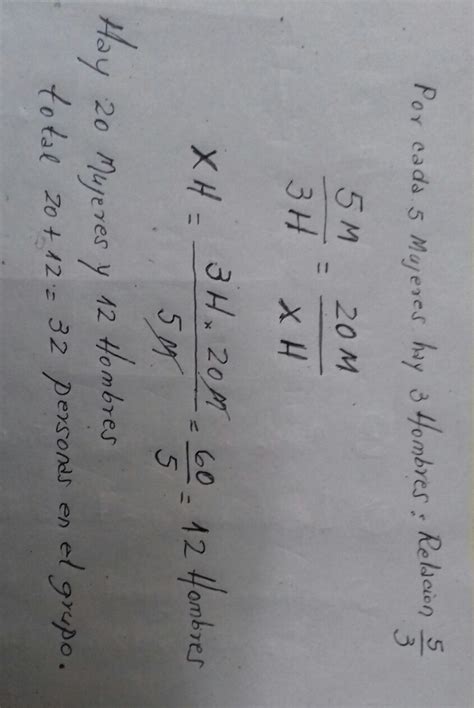 Por cada 5 Mujeres hay 3 Hombres: Relacion 5/3
5M/3H = 20M/XH
XH = 3H × 20M/5M = 60/5 = 12 Hombres
Hay 20 Mujeres y 12 Hombres
total 20+12= 32 personas en el grupo.